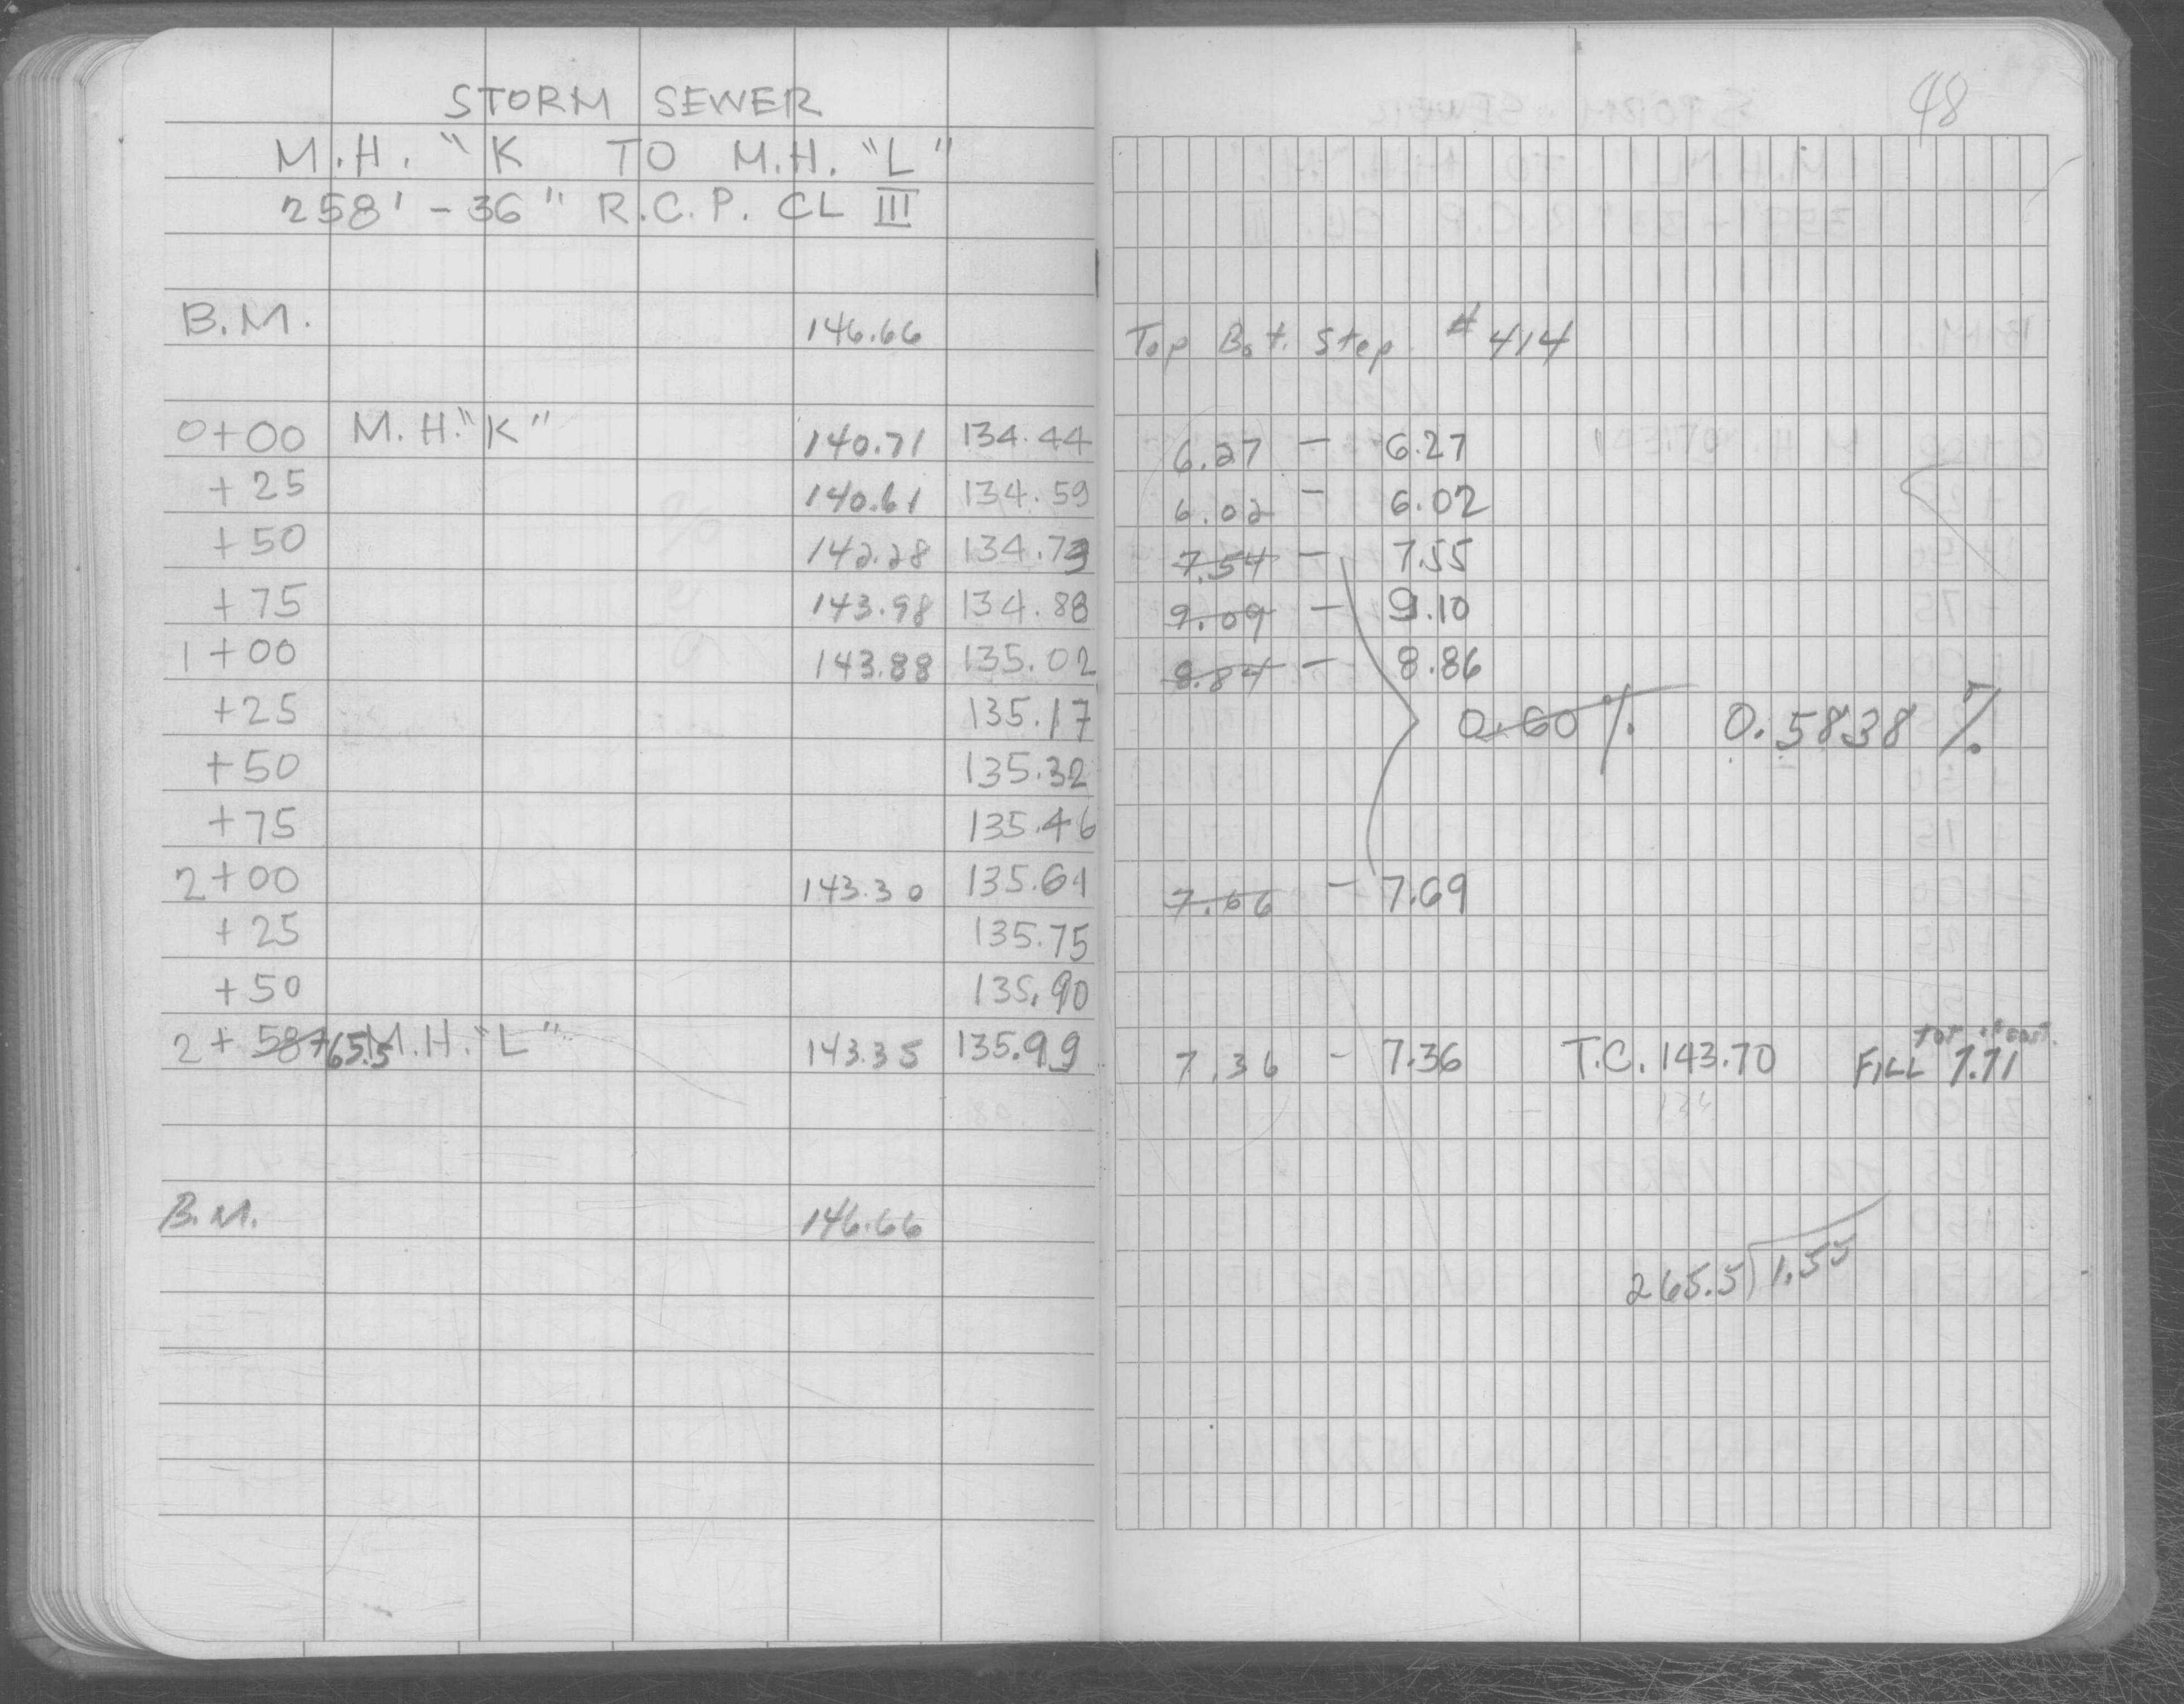 48
STORM SEWER
M.H. "K TO M.H. "L"
258' - 36" R.C.P. CL III
B.M. 146.66 Top Bot. Step # 414
0+00 M.H. "K" 140.71 134.44 6.27 - 6.27
+25 140.61 134.59 6.02 - 6.02
+50 142.28 134.73 7.54 - 7.55
+75 143.98 134.88 9.09 - 9.10
1+00 143.88 135.02 8.84 - 8.86
+25 135.17 0.60 % 0.5838 %
+50 135.32
+75 135.46
2+00 143.30 135.61 7.66 - 7.69
+25 135.75
+50 135.90
2+58 +65.5 M.H. "L" 143.35 135.99 7.36 - 7.36 T.C. 143.70 FILL 7.71
B.M. 146.66
265.5 1.55